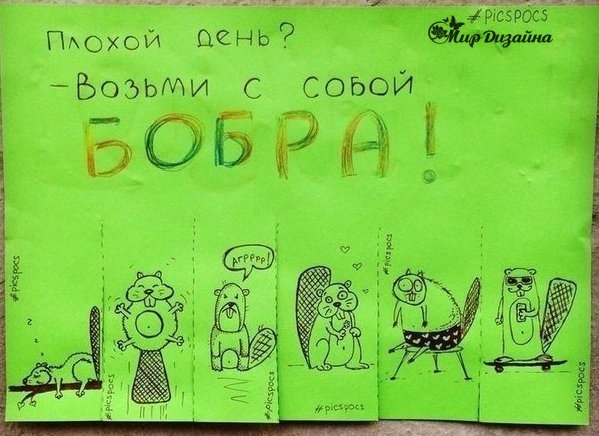 #PICSPOCS
Мир Дизайна
Плохой день?
-Возьми с собой
БОБРА!
Агрррр!
#picspocs
#picspocs
#picspocs
#picspocs
#picspocs
#picspocs